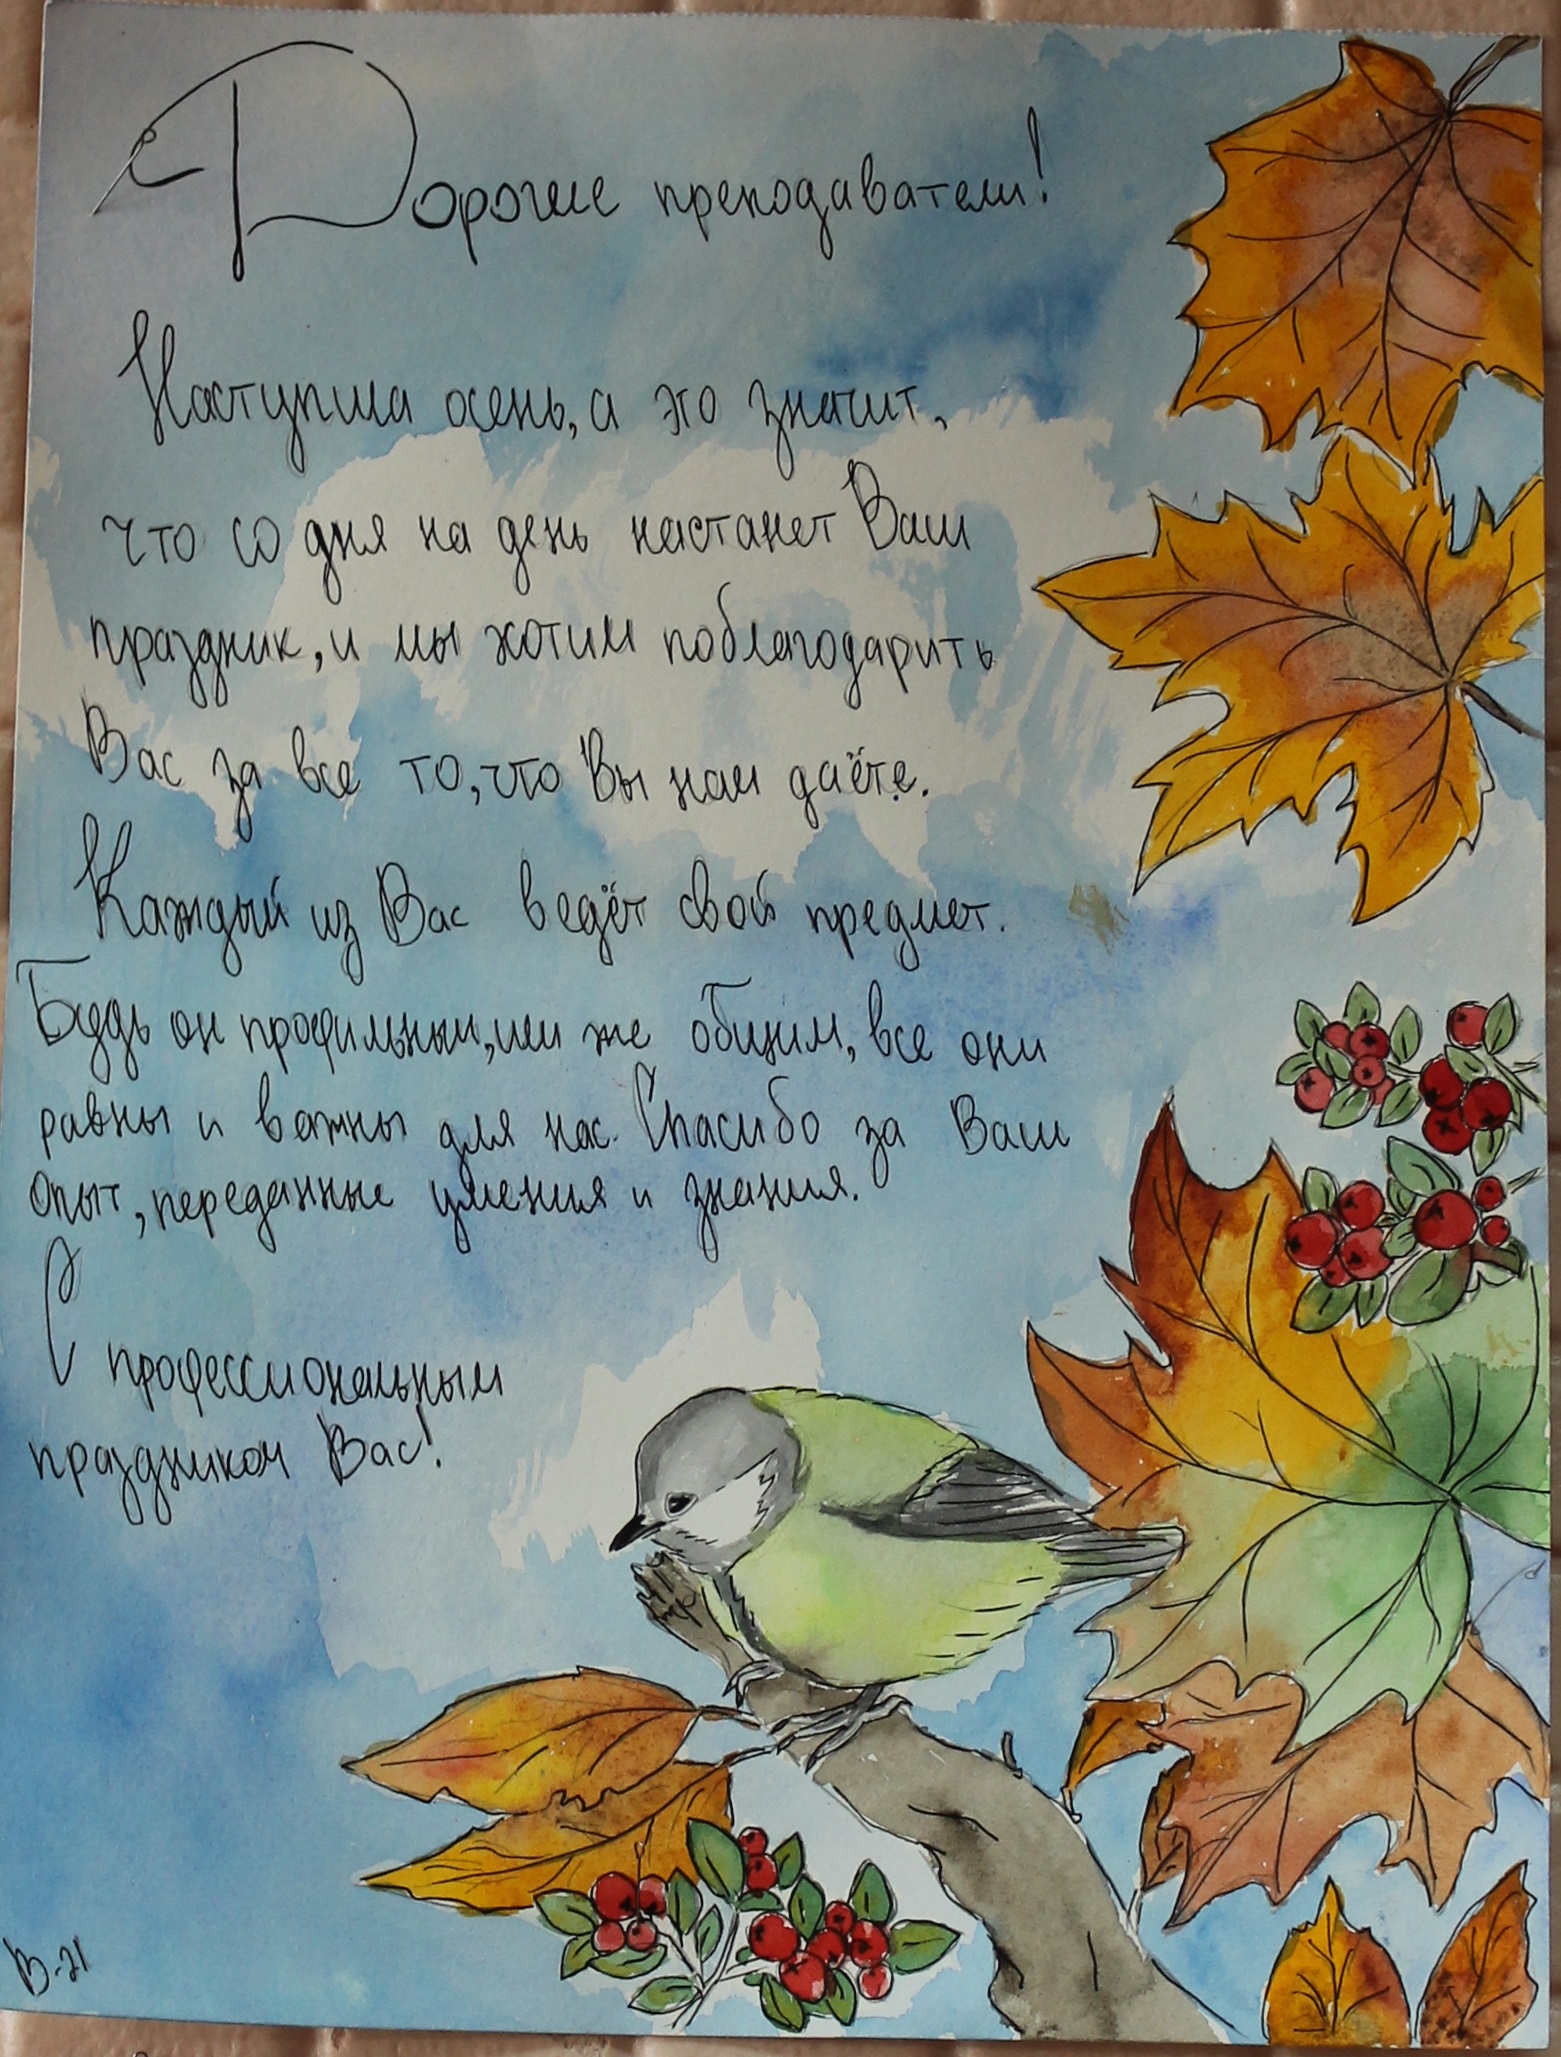 Дорогие преподаватели!
Наступила осень, а это значит,
что со дня на день настанет Ваш
праздник, и мы хотим поблагодарить
Вас за все то, что Вы нам даёте.
Каждый из Вас ведёт свой предмет.
Будь он профильным, или же общим, все они
равны и важны для нас. Спасибо за Ваш
опыт, переданные умения и знания.
С профессиональным
праздником Вас!
В-21